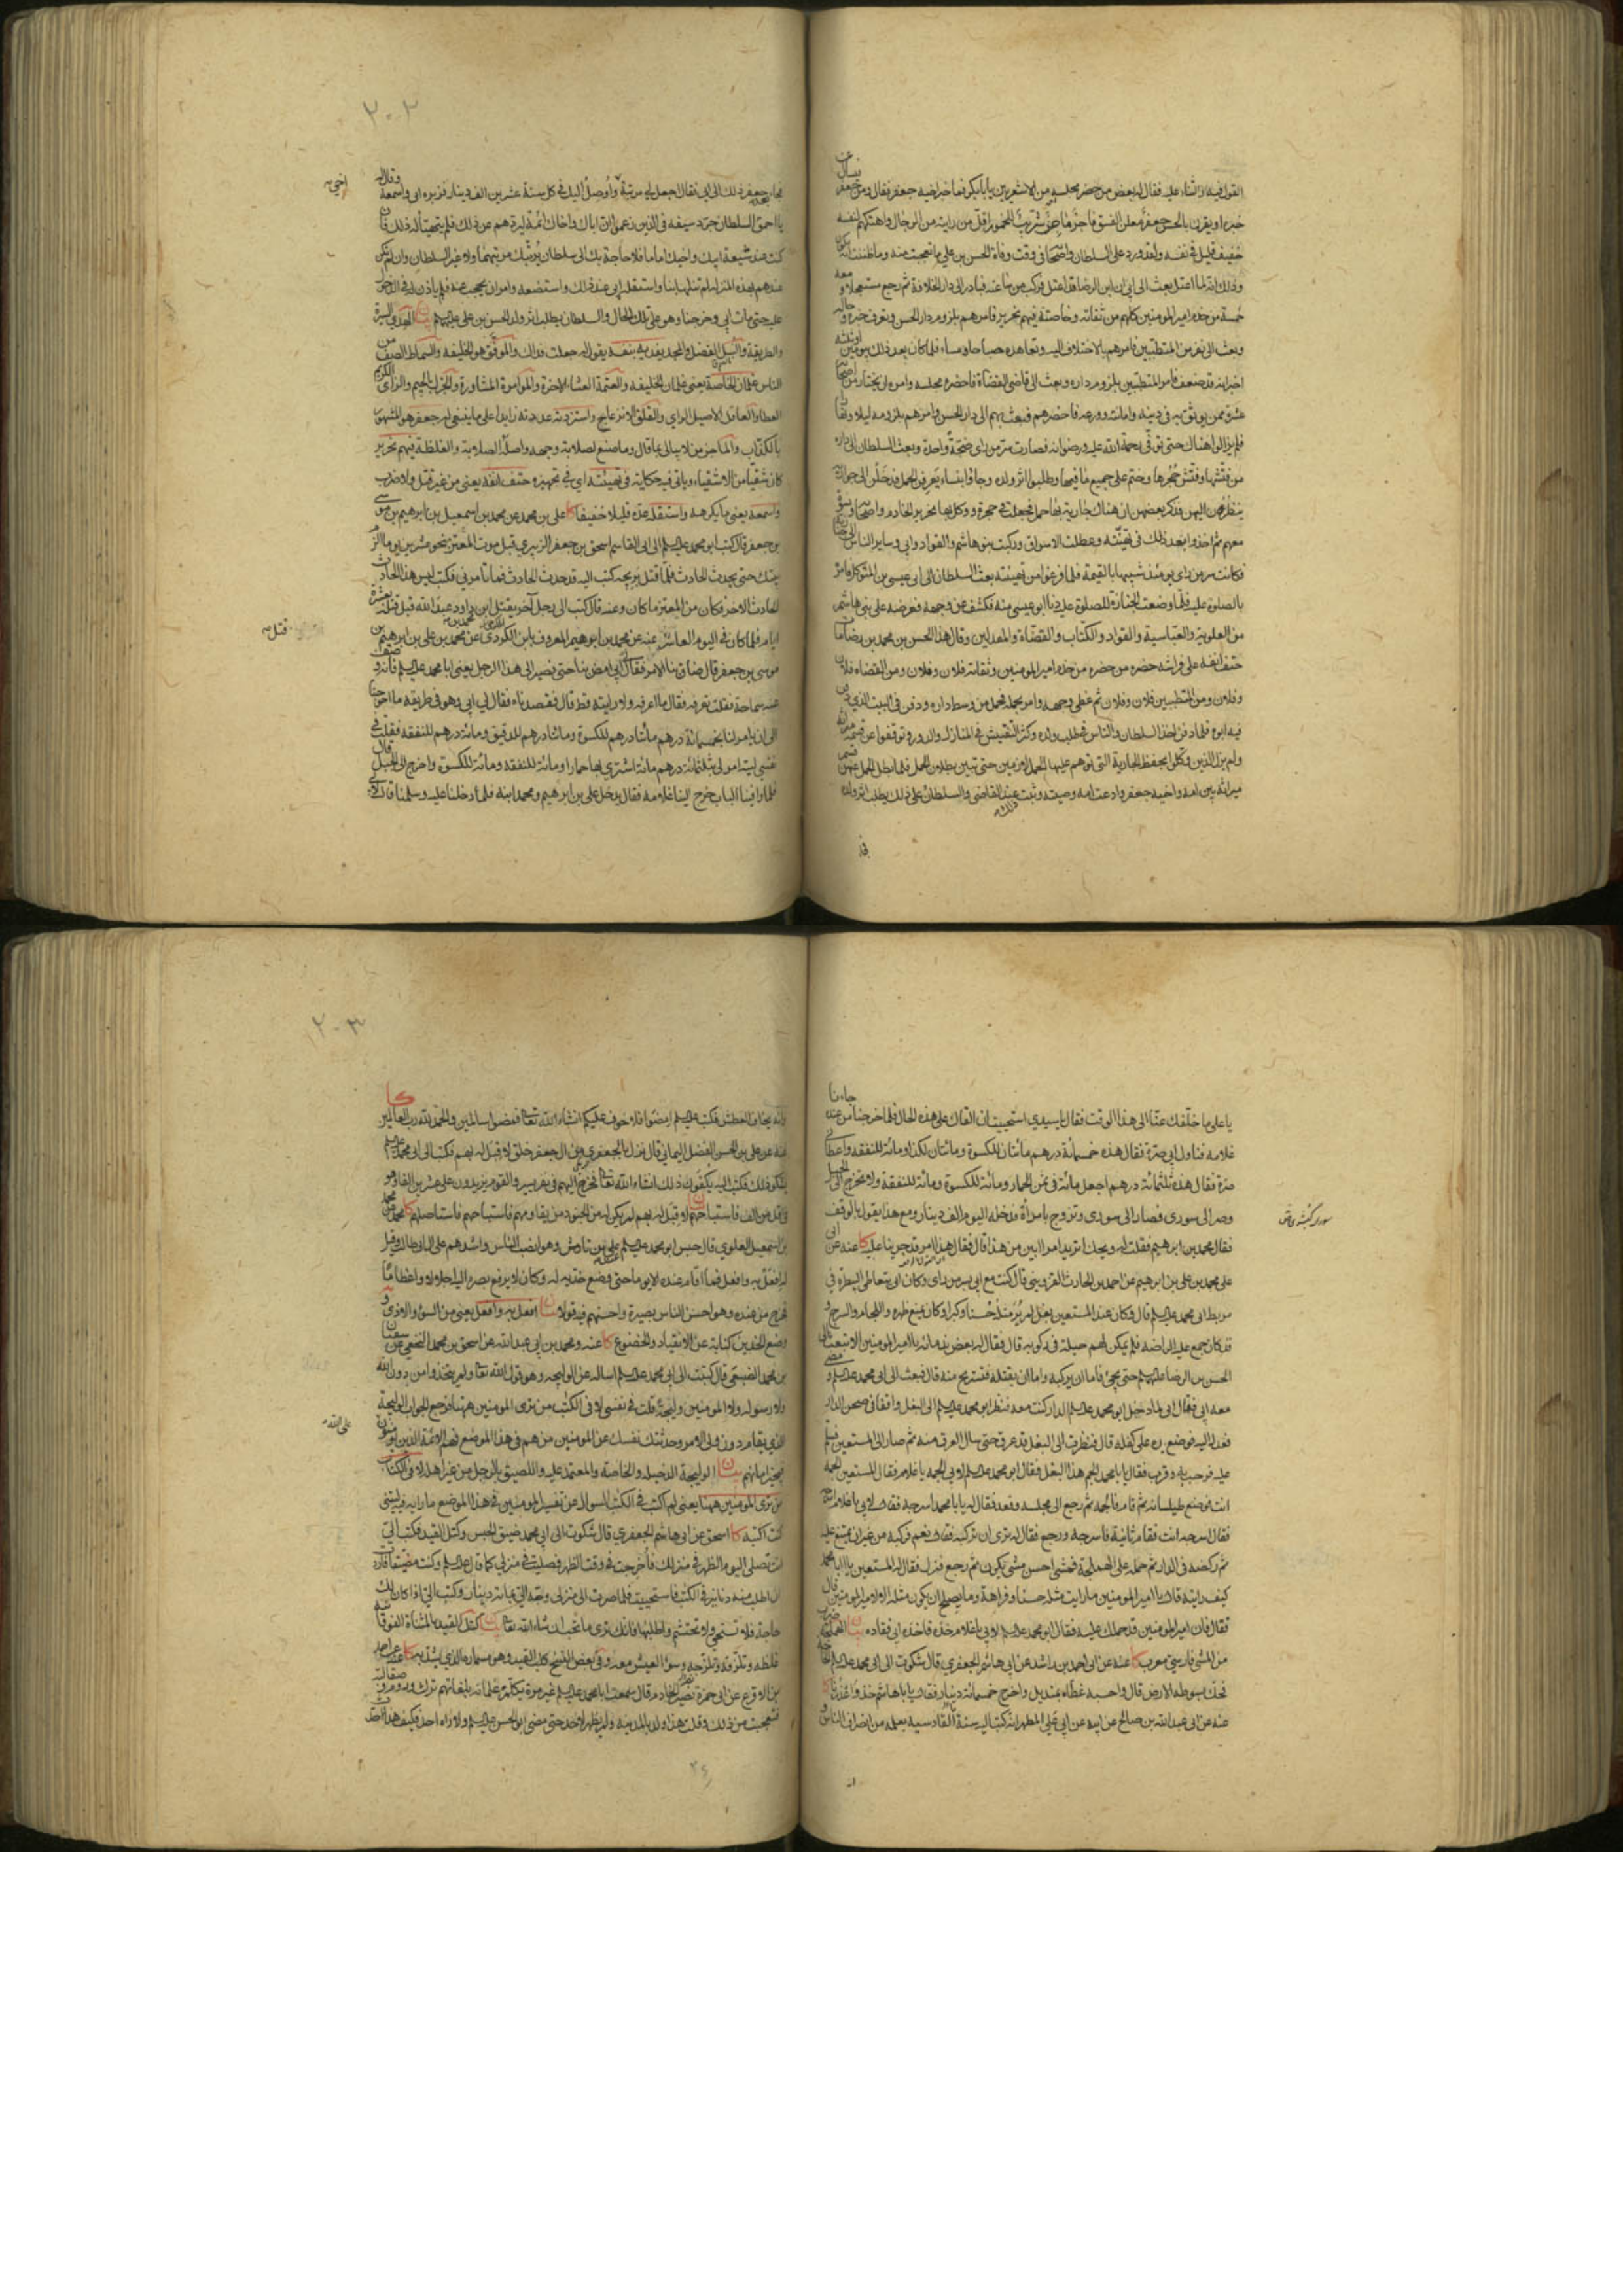 القول فيه والثناء عليه فقال له بعض من حضر مجلسه من الاشعريين يا بابكر فما خبر اخيه جعفر فقال ومن جعفر فيسال عن
خبره او يقرن بالحسن جعفر معلن الفسق فاجر ماجن شريب للخمور اقل من رايته من الرجال واهتكهم لنفسه
خفيف قليل في نفسه ولقد ورد على السلطان واصحابه في وقت وفاة الحسن بن علي ما تعجبت منه وما ظننت انه يكون
وذلك انه لما اعتل بعث الى ابي ان ابن الرضا قد اعتل فركب من ساعته فبادر الى دار الخلافة ثم رجع مستعجلا ومعه
خمسة من خدم امير المومنين كلهم من ثقاته وخاصته فيهم نحرير فامرهم بلزوم دار الحسن وتعرف خبره وحاله
وبعث الى نفر من المتطببين فامرهم بالاختلاف اليه وتعاهده صباحا ومساء فلما كان بعد ذلك بيومين او ثلثة
اخبر انه قد ضعف فامر المتطببين بلزوم داره وبعث الى قاضي القضاة فاحضره مجلسه وامره ان يختار من اصحابه
عشرة ممن يوثق به في دينه وامانته وورعه فاحضرهم فبعث بهم الى دار الحسن وامرهم بلزومه ليلا ونهارا
فلم يزالوا هناك حتى توفي رحمة الله عليه ورضوانه فصارت سر من راى ضجة واحدة وبعث السلطان الى داره
من فتشها وفتش حجرها وختم على جميع ما فيها وطلبوا اثر ولده وجاؤا بنساء يعرفن الحمل فدخلن الى جواريه
ينظرن اليهن فذكر بعضهن ان هناك جارية بها حمل فجعلت في حجرة ووكل بها نحرير الخادم واصحابه ونسوة
معهم ثم اخذوا بعد ذلك في تهيئته وعطلت الاسواق وركبت بنو هاشم والقواد وابي وساير الناس الى جنازته
فكانت سر من راى يومئذ شبيها بالقيمة فلما فرغوا من تهيئته بعث السلطان الى ابي عيسى بن المتوكل فامره
بالصلوة عليه فلما وضعت الجنازة للصلوة عليه دنا ابو عيسى منه فكشف عن وجهه فعرضه على بني هاشم
من العلوية والعباسية والقواد والكتاب والقضاة والمعدلين وقال هذا الحسن بن محمد بن رضا مات
حتف انفه على فراشه حضره من حضره من خدم امير المومنين وثقاته فلان وفلان ومن القضاة فلان
وفلان ومن المتطببين فلان وفلان ثم غطى وجهه وامر بحمله فحمل من وسط داره ودفن في البيت الذي دفن
فيه ابوه فلما دفن اخذ السلطان والناس في طلب ولده وكثر التفتيش في المنازل والدور وتوقفوا عن قسمة ميراثه
ولم يزل الذين وكلوا بحفظ الجارية التي توهم عليها الحمل لازمين حتى تبين بطلان الحمل فلما بطل الحمل عنهن قسم
ميراثه بين امه واخيه جعفر وادعت امه وصيته وثبت ذلك عند القاضي والسلطان على ذلك يطلب اثر ولده
فجاء جعفر بعد ذلك الى ابي فقال اجعل لي مرتبة واوصل اليك في كل سنة عشرين الف دينار فزبره ابي واسمعه وقال له
اخي
يا احمق السلطان جرد سيفه في الذين زعموا ان اباك واخاك ائمة ليردهم عن ذلك فلم يتهيأ له ذلك فان
كنت عند شيعة ابيك واخيك اماما فلا حاجة بك الى سلطان يرتبك مرتبتهما ولا غير السلطان وان لم تكن
عندهم بهذه المنزلة لم تنلها بنا واستقله ابي عند ذلك واستضعفه وامر ان يحجب عنه فلم ياذن له في الدخول
عليه حتى مات ابي وخرجنا وهو على تلك الحال والسلطان يطلب اثر ولد الحسن بن علي عليهم بيان الهدي السيرة
والطريقة والنبل الفضل والمجد يفديه بنفسه يقول له جعلت فداك والموفق هو الخليفة والسماط الصف من
الناس غلمان الخاصة يعني غلمان الخليفة والعتمة العشاء الاخرة والموامرة المشاورة والجزل بالجيم والزاي الكريم
العطاء والعاقل الاصيل الراي والقلق الانزعاج واستزدته عددته زايدا على ما ينبغي له جعفر هو المشهور
بالكذاب والماجن من لا يبالي بما قال وما صنع لصلابة وجهه واصله الصلابة والغلظة فيهم نحرير
كان شقيا من الاشقياء وياتي فيه حكاية في تهيئته اي في تجهيزه حتف انفه يعني من غير قتل ولا ضرب
واسمعه يعني ما يكرهه واستقله عده قليلا خفيفا كا علي بن محمد عن محمد بن اسمعيل بن ابرهيم بن موسى
بن جعفر قال كتب ابو محمد عليه السلم الى ابي القاسم اسحق بن جعفر الزبيري قبل موت المعتز بنحو عشرين يوما الزم
بيتك حتى يحدث الحادث فلما قتل بريحه كتب اليه قد حدث الحادث فما تامرني فكتب ليس هذا الحادث
الحادث الاخر فكان من المعتز ما كان وعنه قال كتب الى رجل آخر يقتل ابن محمد بن داود عبد الله قبل قتله بعشرة
قتل
ايام فلما كان في اليوم العاشر عنه عن محمد بن ابرهيم المعروف بابن الكردي عن محمد بن علي بن ابرهيم بن
موسى بن جعفر قال ضاق بنا الامر فقال لي ابي امض بنا حتى نصير الى هذا الرجل يعني ابا محمد عليه السلم فانه قد وصف
عنه سماحة فقلت تعرفه فقال ما اعرفه ولا رايته قط قال فقصدناه فقال لي ابي وهو في طريقه ما احوجنا
الى ان يامر لنا بخمسمائة درهم مائتا درهم للكسوة ومائتا درهم للدقيق ومائة درهم للنفقة فقلت في
نفسي ليته امر لي بثلثمائة درهم مائة اشتري بها حمارا ومائة للنفقة ومائة للكسوة واخرج الى الجبل قال
فلما وافينا الباب خرج الينا غلامه فقال يدخل علي بن ابرهيم ومحمد ابنه فلما دخلنا عليه وسلمنا قال لابي
يا علي ما خلفك عنا الى هذا الوقت فقال يا سيدي استحييت ان القاك على هذه الحال فلما خرجنا من عنده جاءنا
غلامه فناول ابي صرة فقال هذه خمسمائة درهم مائتان للكسوة ومائتان لكذا ومائة للنفقة واعطاني
صرة فقال هذه ثلثمائة درهم اجعل مائة في ثمن الحمار ومائة للكسوة ومائة للنفقة ولا تخرج الى الجبل
وصر الى سورى فصار الى سورى وتزوج بامرأة فدخله اليوم الف دينار ومع هذا يقول بالوقف
فقال محمد بن ابرهيم فقلت له ويحك اتريد امرا ابين من هذا قال فقال هذا امر قد جرينا عليه كا عنه عن ابي
علي محمد بن علي بن ابرهيم عن احمد بن الحارث القزويني قال كنت مع ابي بسر من راى وكان ابي يتعاطى البيطرة في
مربط ابي محمد عليه السلم قال وكان عند المستعين بغل لم ير مثله حسنا وكبرا وكان يمنع ظهره واللجام والسرج و
قد كان جمع عليه الراضة فلم يكن لهم حيلة في ركوبه قال فقال له بعض ندمائه يا امير المومنين الا تبعث الى
الحسن بن الرضا عليهم حتى يجئ فاما ان يركبه واما ان يقتله فتستريح منه قال فبعث الى ابي محمد عليه السلم ومضى
معه ابي فقال ابي لما دخل ابو محمد عليه السلم الدار كنت معه فنظر ابو محمد عليه السلم الى البغل واقفا في صحن الدار
فعدل اليه فوضع يده على كفله قال فنظرت الى البغل قد عرق حتى سال العرق منه ثم صار الى المستعين فسلم
عليه فرحب به وقرب فقال يا با محمد الجم هذا البغل فقال ابو محمد عليه السلم لابي الجمه يا غلام فقال المستعين الجمه
انت فوضع طيلسانه ثم قام فالجمه ثم رجع الى مجلسه وقعد فقال له يا با محمد اسرجه فقال لابي يا غلام اسرجه
فقال اسرجه انت فقام ثانية فاسرجه ورجع فقال له ترى ان تركبه فقال نعم فركبه من غير ان يمتنع عليه
ثم ركضه في الدار ثم حمله على الهملجة فمشى احسن مشي يكون ثم رجع فنزل فقال له المستعين يا ابا محمد
كيف رايته قال يا امير المومنين ما رايت مثله حسنا وفراهة وما يصلح ان يكون مثله الا لامير المومنين قال
فقال فان امير المومنين قد حملك عليه فقال ابو محمد عليه السلم لابي يا غلام خذه فاخذه ابي فقاده بيان الهملجة ضرب
من المشي فارسي معرب كا عنه عن ابي احمد بن راشد عن ابي هاشم الجعفري قال شكوت الى ابي محمد عليه السلم الحاجة
فحك بسوطه الارض قال واحسبه غطاه بمنديل واخرج خمسمائة دينار فقال يا با هاشم خذ واعذرنا كا
عنه عن ابي عبد الله بن صالح عن ابيه عن ابي علي المطهر انه كتب اليه سنة القادسية يعلمه انصراف الناس
وانه يخاف العطش فكتب عليه السلم امضوا فلا خوف عليكم انشاء الله تعالى فمضوا سالمين والحمد لله رب العالمين كا
عنه عن علي بن الحسن الفضل اليماني قال نزل بالجعفري من ال جعفر خلق لا قبل له بهم فكتب الى ابي محمد عليه السلم
يشكو ذلك فكتب اليه يكفون ذلك انشاء الله تعالى فخرج اليهم في نفر يسير والقوم يزيدون على عشرين الفا وهو
في اقل من الف فاستباحهم بيان لا قبل له بهم لم يكن له من الجنود من يقاومهم فاستباحهم فاستاصلهم كا محمد عن محمد
بن اسمعيل العلوي قال حبس ابو محمد عليه السلم عند علي بن نارمش وهو انصب الناس واشدهم على ال ابي طالب وقيل
له افعل به وافعل فما اقام عنده الا يوما حتى وضع خديه له وكان لا يرفع بصره اليه اجلالا واعظاما
فخرج من عنده وهو احسن الناس بصيرة واحسنهم فيه قولا بيان افعل به وافعل يعني من السوء والاذى و
وضع الخدين كناية عن الانقياد والخضوع كا عنه ومحمد بن ابي عبد الله عن اسحق بن محمد النخعي عن سفيان
بن محمد الضبعي قال كتبت الى ابي محمد عليه السلم اساله عن الوليجه وهو قول الله تعالى ولم يتخذوا من دون الله
ولا رسوله ولا المومنين وليجة قلت في نفسي لا في الكتب من ترى المومنين ههنا فرجع الجواب الوليجة
الذي يقام دون ولي الامر وحدثتك نفسك عن المومنين من هم في هذا الموضع فهم الائمة الذين يومنون
على الله
فيجيز امانهم بيان الوليجة الدخيله والخاصة والمعتمد عليه واللصيق بالرجل من غير اهله لا في الكتاب
من ترى المومنين ههنا يعني لم اكتب في الكتب السوال عن تفسير المومنين في هذا الموضع ما رايه فيه ليتني
كنت اكتبه كا اسحق عن ابي هاشم الجعفري قال شكوت الى ابي محمد ضيق الحبس وكتل القيد فكتب الي
انت تصلي اليوم الظهر في منزلك فاخرجت في وقت الظهر فصليت في منزلي كما قال عليه السلم وكنت مضيقا فاردت
ان اطلب منه دنانير في الكتب فاستحييت فلما صرت الى منزلي وجه الي بمائة دينار وكتب الي اذا كان لك
حاجة فلا تستحي ولا تحتشم واطلبها فانك ترى ما تحب انشاء الله تعالى بيان كتل القيد بالمثناة الفوقانية
غلظه وتلزقه وتلزجه وسوء العيش معه وفي بعض النسخ كلب القيد وهو مسماره الذي يشد به كا عنه عن احمد
بن الاقرع عن ابي حمزة نصير الخادم قال سمعت ابا محمد عليه السلم غير مرة يكلم غلمانه بلغاتهم ترك وروم وصقالبة
فتعجبت من ذلك وقلت هذا ولد بالمدينة ولم يظهر لاحد حتى مضى ابو الحسن عليه السلم ولا راه احد فكيف هذا